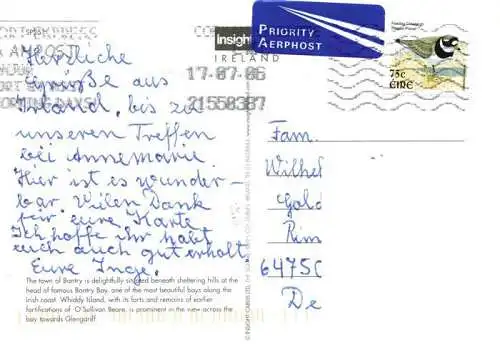 Herzliche
Grüße aus
Irland, bis zu
unseren Treffen
bei Annemarie
Hier ist es wunder-
bar. Vielen Dank
für eure Karte
Ich hoffe ihr habt
euch auch gut erholt
Eure Inge.
The town of Bantry is delightfully situated beneath sheltering hills at the
head of famous Bantry Bay, one of the most beautiful bays along the
Irish coast. Whiddy Island, with its forts and remains of earlier
fortifications of O'Sullivan Beare, is prominent in the view across the
bay towards Glengariff
Insight
IRELAND
17-07-06
21550387
PRIORITY
AERPHOST
75c
ÉIRE
Fam.
Wilhel
Gold
Rim
6475
De